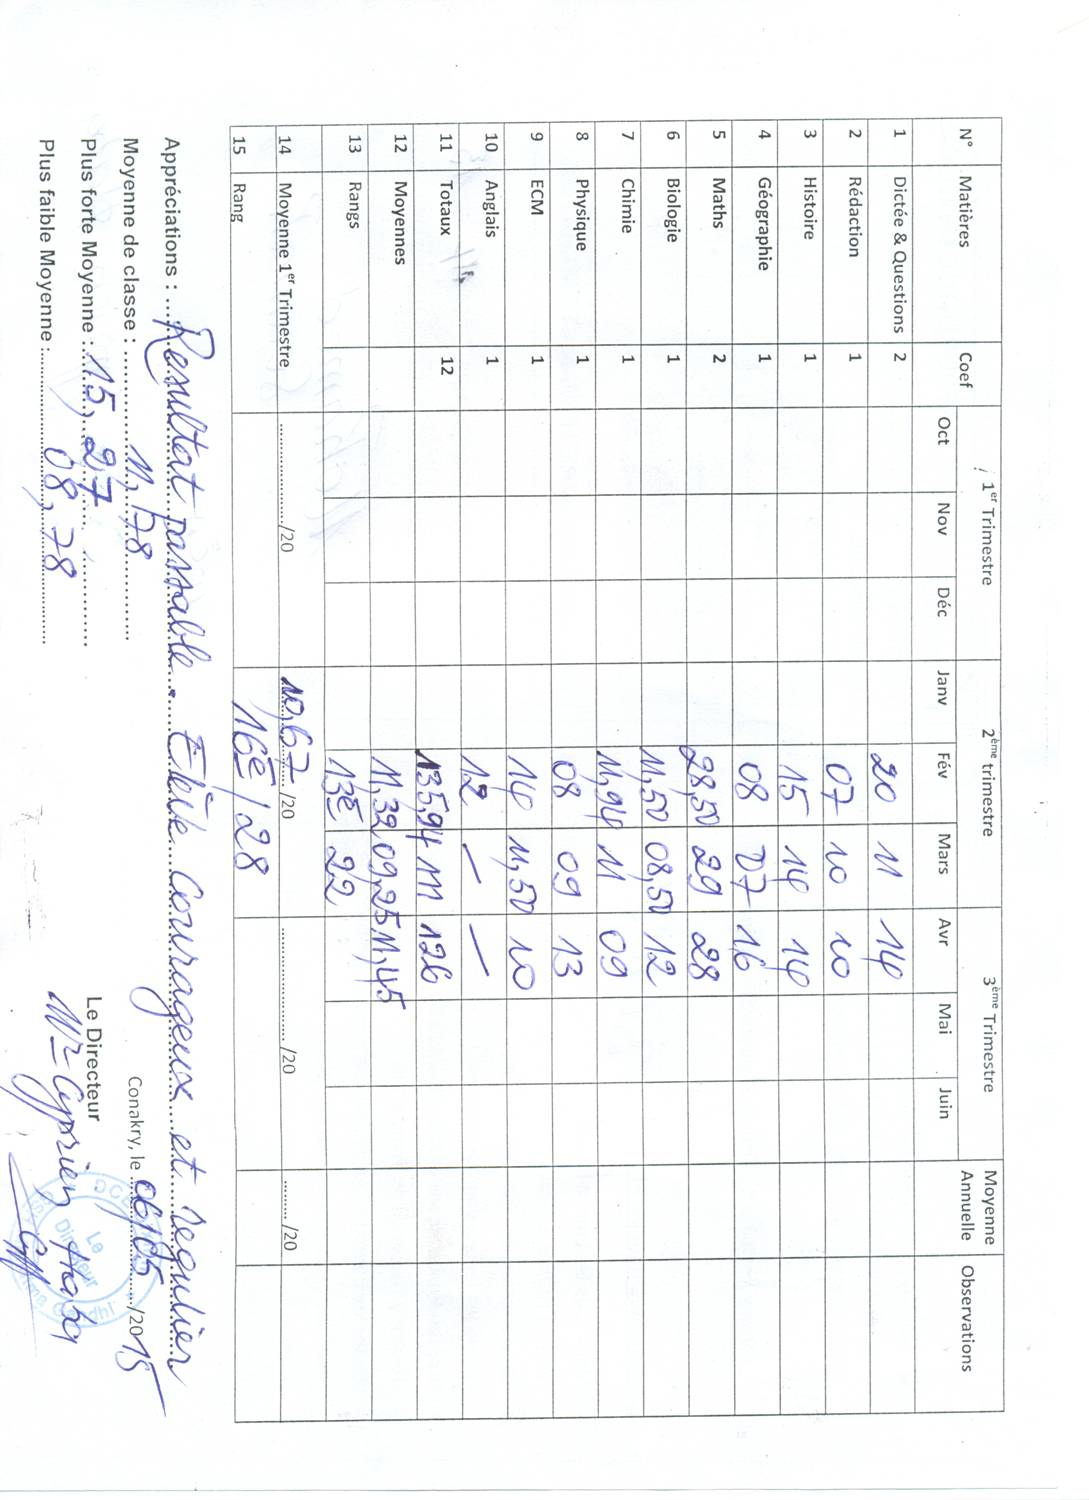 N° Matières Coef 1er Trimestre 2ème trimestre 3ème Trimestre Moyenne Annuelle Observations
Oct Nov Déc Janv Fév Mars Avr Mai Juin
1 Dictée & Questions 2 20 11 14
2 Rédaction 1 07 10 10
3 Histoire 1 15 14 14
4 Géographie 1 08 07 16
5 Maths 2 28,50 29 28
6 Biologie 1 11,50 08,50 12
7 Chimie 1 11,94 11 09
8 Physique 1 08 09 13
9 ECM 1 14 11,50 10
10 Anglais 1 12 — —
11 Totaux 12 135,94 111 126
12 Moyennes 11,32 09,25 11,45
13 Rangs 13è 22
14 Moyenne 1er Trimestre ................../20 10,67 /20 .................. /20 ........../20
15 Rang 16è/28
Appréciations : Resultat passable. Elève Courageux et regulier
Moyenne de classe : 11,78
Conakry, le 06/05/2015
Plus forte Moyenne : 15,27
Le Directeur
Plus faible Moyenne : 08,78
Mr Cyprien
Le Directeur